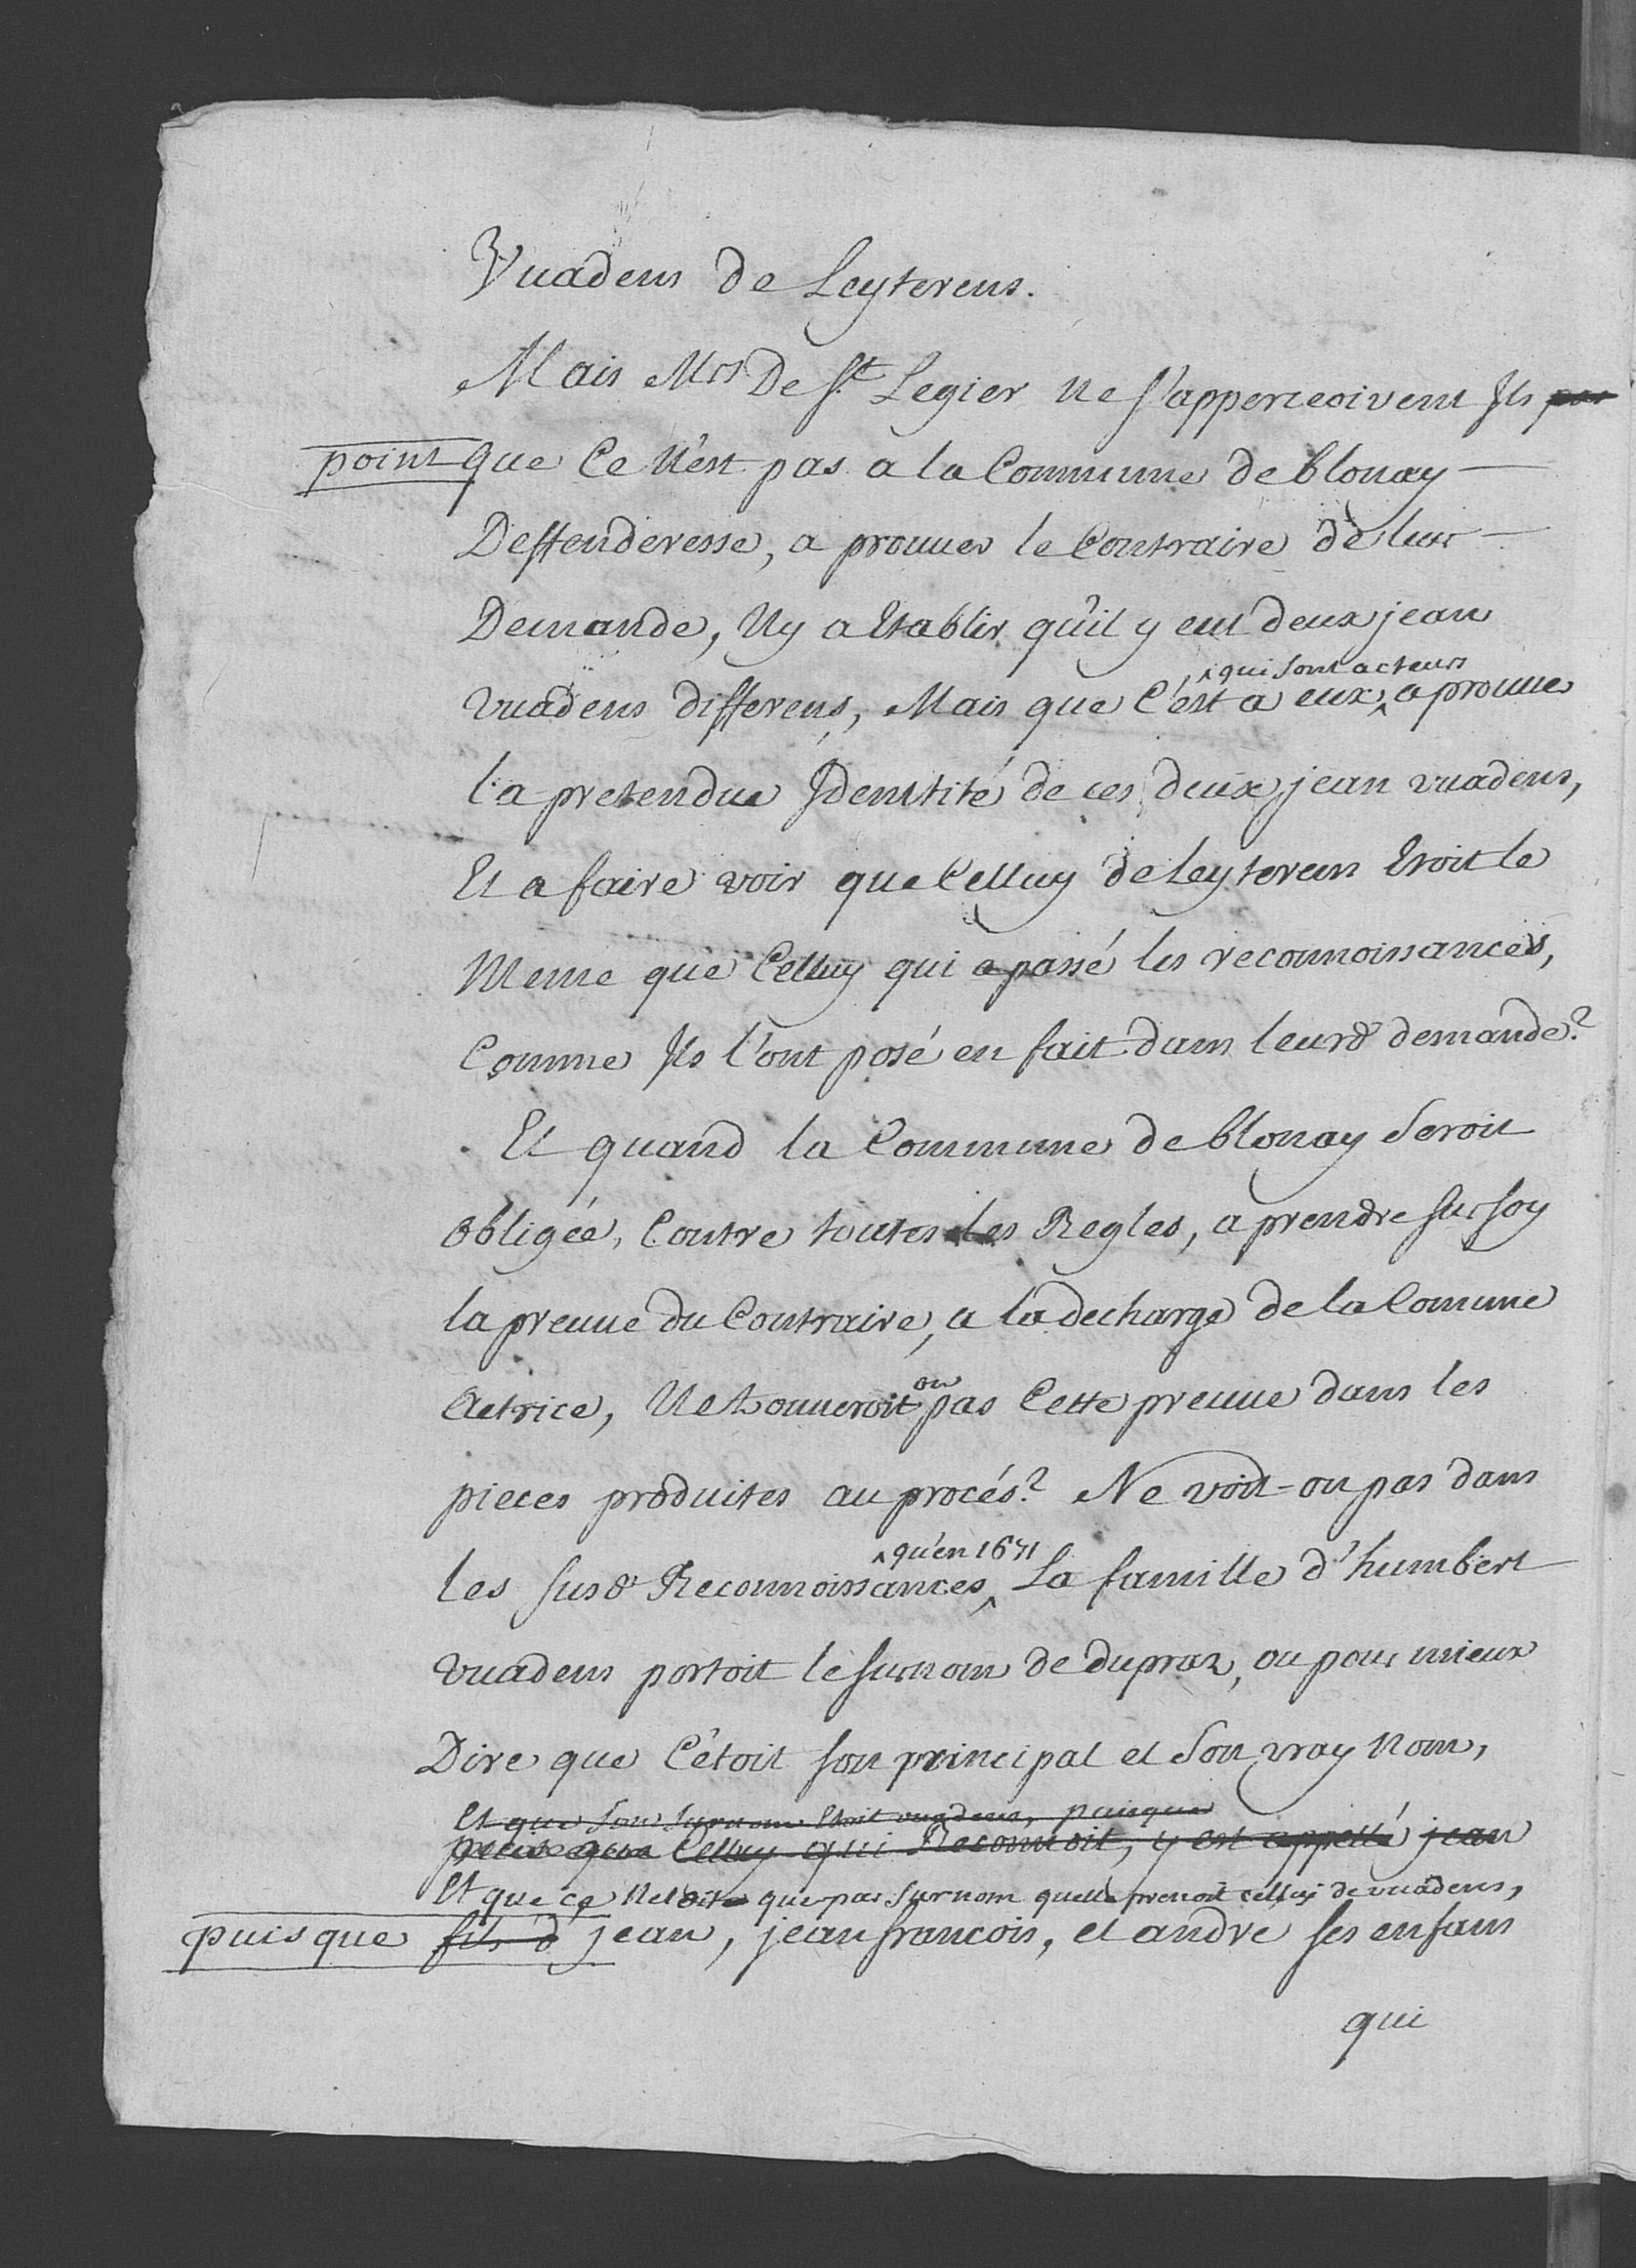 Vuadens de Leyterens.
Mais Mrs De St Legier Ne s'apperceoivent Ils pas
point que Ce N'est pas a la Commune de blonay
Deffenderesse, a prouver le Contraire de leur
Demande, Ny a Etablir qu'il y eut deux jean
qui sont acteurs
vuadens differens, Mais que C'est a eux, a prouver
la pretendue Identité de ces deux jean vuadens,
Et a faire voir que Celluy de Leyterens Etoit le
Meme que Celluy qui a passé les reconnoissances,
Comme Ils l'ont posé en fait dans leurd demande?
Et quand la Commune de blonay Seroit
obligée, Contre toutes les Regles, a prendre sur soy
la preuve du Contraire, a la decharge de la Comune
on
Actrice, Ne trouveroit pas Cette preuve dans les
pieces produites au procés? Ne voit-on pas dans
qu'en 1671
les susd Reconnoissances, La famille d'humbert
vuadens portoit le surnom de dupraz, ou pour mieux
Dire que C'étoit son principal et son vray Nom,
Et que son surnom Etoit vuadens, puisque
Celluy qui Reconnoit, y est appellé jean
Et que ce Netoit que par surnom quelle prenoit celluy de vuadens,
puis que fils d jean, jean francois, et andre ses enfans
qui